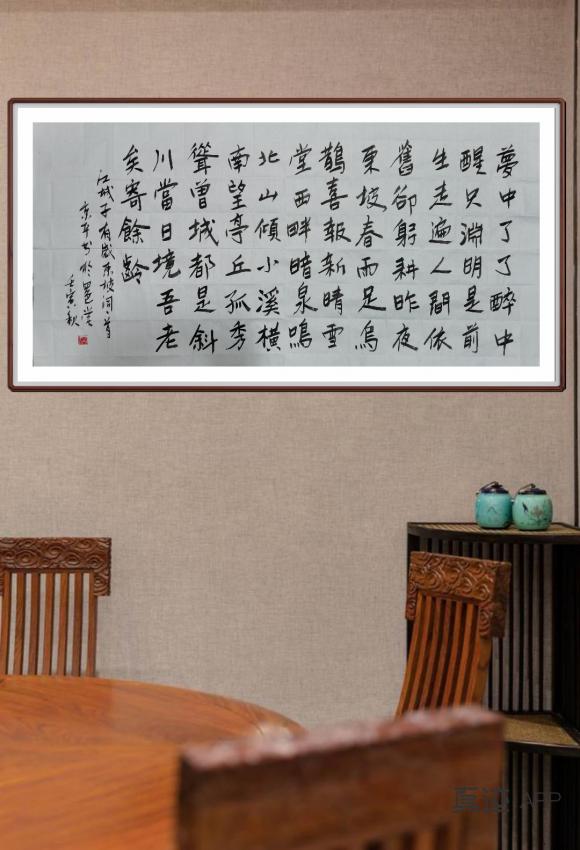 夢中了了醉中
醒只淵明是前
生走遍人間依
舊卻躬耕昨夜
東坡春雨足烏
鵲喜報新晴雪
堂西畔暗泉鳴
北山傾小溪橫
南望亭丘孤秀
聳曾城都是斜
川當日境吾老
矣寄餘齡
江城子有感东坡词首
书於
壬寅秋
真迹 APP